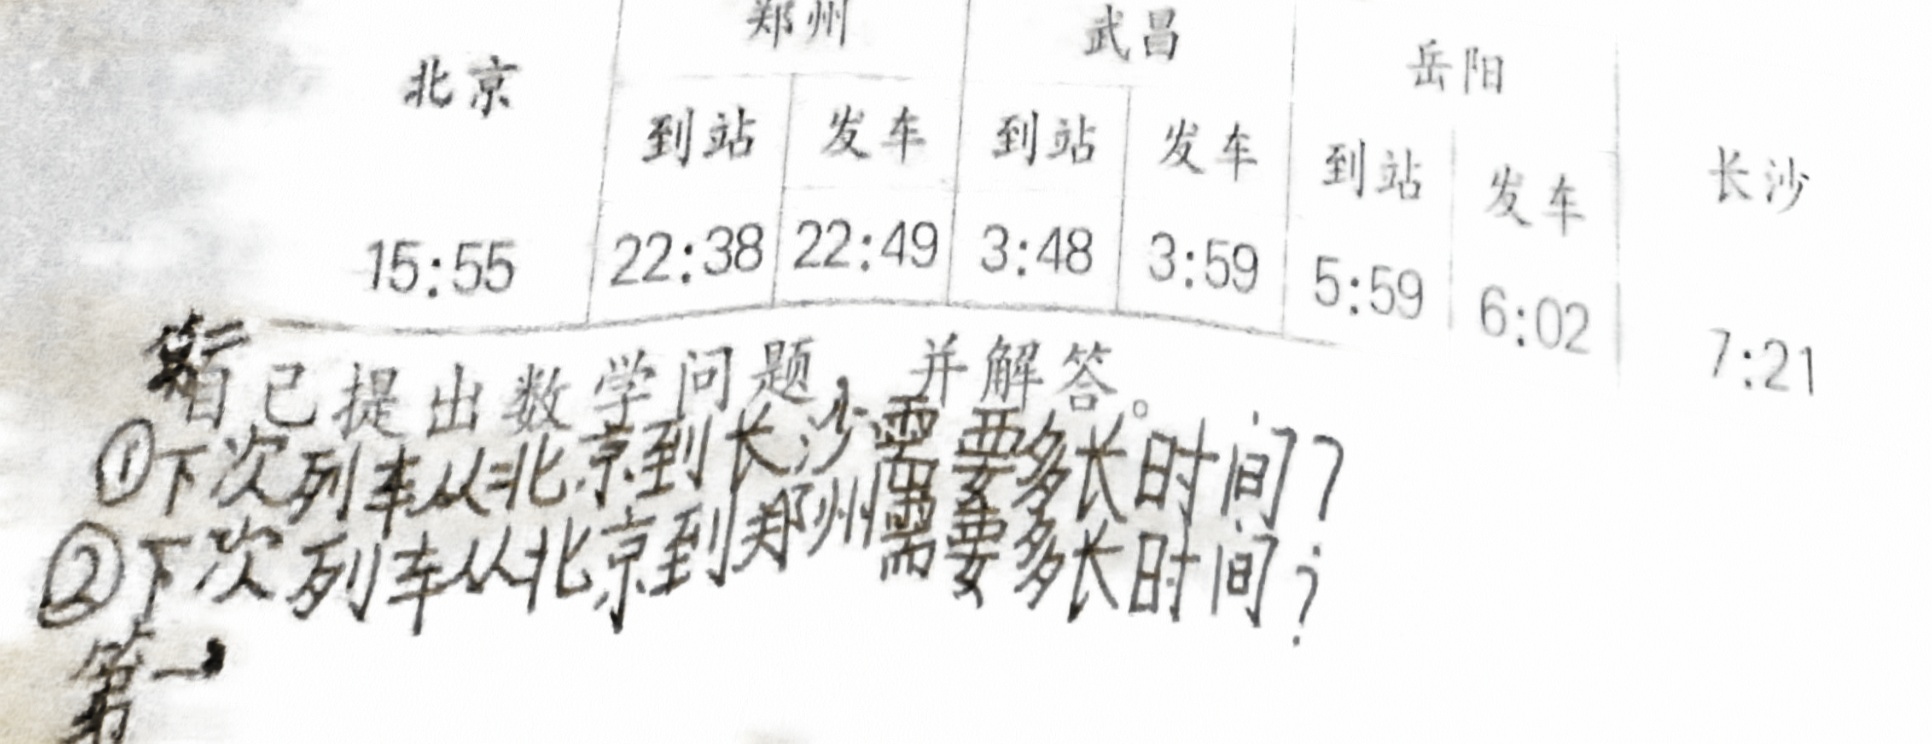 北京 郑州 武昌 岳阳 长沙
到站 发车 到站 发车 到站 发车
15:55 22:38 22:49 3:48 3:59 5:59 6:02 7:21
第二
自己提出数学问题，并解答。
①下次列车从北京到长沙需要多长时间？
②下次列车从北京到郑州需要多长时间？
第一